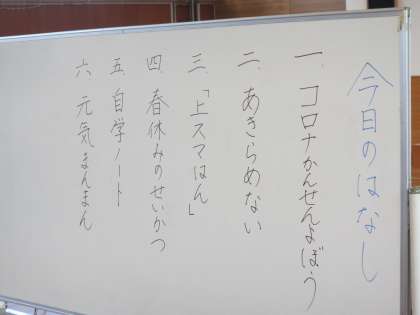 今日のはなし
一、コロナかんせんよぼう
二、あきらめない
三、「上スマはん」
四、春休みのせいかつ
五、自学ノート
六、元気まんまん